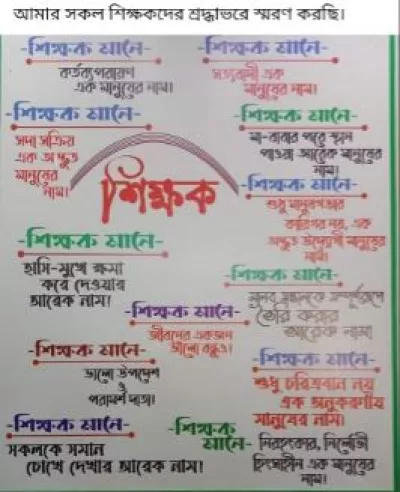 আমার সকল শিক্ষকদের শ্রদ্ধাভরে স্মরণ করছি।
-শিক্ষক মানে-
কর্তব্যপরায়ণ
এক মানুষের নাম।
-শিক্ষক মানে-
সত্যবাদী এক
মানুষের নাম।
-শিক্ষক মানে-
সদা সক্রিয়
এক অদ্ভুত
মানুষের
নাম।
-শিক্ষক মানে-
মা-বাবার পরে স্থান
পাওয়া আরেক মানুষের
নাম।
শিক্ষক
-শিক্ষক মানে-
শুধু মানুষ গড়ার
কারিগর নয়, এক
অদ্ভুত মানুষের
নাম।
-শিক্ষক মানে-
হাসি-মুখে ক্ষমা
করে দেওয়ার
আরেক নাম।
-শিক্ষক মানে-
সম্পূর্ণরূপে
তৈরি করার
আরেক নাম।
-শিক্ষক মানে-
জীবনের একজন
ভালো বন্ধু।
-শিক্ষক মানে-
ভালো উপদেশ
ও
পরামর্শ দাতা।
-শিক্ষক মানে-
শুধু চরিত্রবান নয়
এক অনুকরণীয়
মানুষের নাম।
-শিক্ষক মানে-
সকলকে সমান
চোখে দেখার আরেক নাম।
-শিক্ষক
মানে- নিরহংকার, নির্লোভী
হিংসাহীন এক মানুষের
নাম।